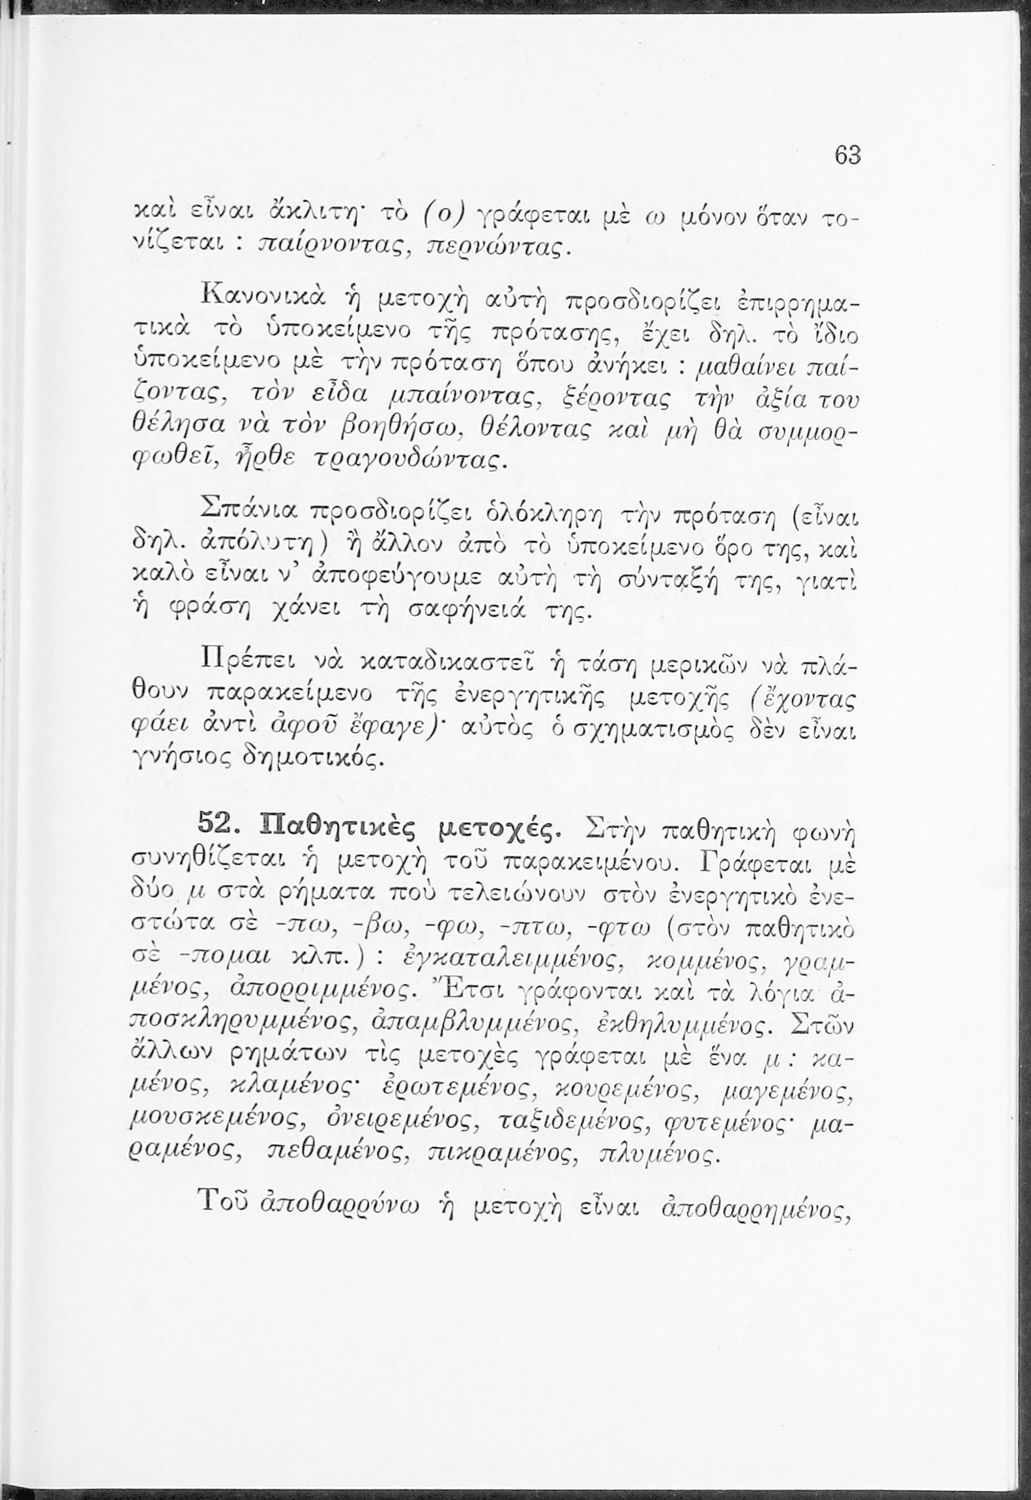 63
καὶ εἶναι ἄκλιτη· τὸ (ο) γράφεται μὲ ω μόνον ὅταν το-
νίζεται : παίρνοντας, περνώντας.
Κανονικὰ ἡ μετοχὴ αὐτὴ προσδιορίζει ἐπιρρημα-
τικὰ τὸ ὑποκείμενο τῆς πρότασης, ἔχει δηλ. τὸ ἴδιο
ὑποκείμενο μὲ τὴν πρόταση ὅπου ἀνήκει : μαθαίνει παί-
ζοντας, τὸν εἶδα μπαίνοντας, ξέροντας τὴν ἀξία του
θέλησα νὰ τὸν βοηθήσω, θέλοντας καὶ μὴ θὰ συμμορ-
φωθεῖ, ἦρθε τραγουδώντας.
Σπάνια προσδιορίζει ὁλόκληρη τὴν πρόταση (εἶναι
δηλ. ἀπόλυτη) ἢ ἄλλον ἀπὸ τὸ ὑποκείμενο ὅρο της, καὶ
καλὸ εἶναι ν’ ἀποφεύγουμε αὐτὴ τὴ σύνταξή της, γιατὶ
ἡ φράση χάνει τὴ σαφήνειά της.
Πρέπει νὰ καταδικαστεῖ ἡ τάση μερικῶν νὰ πλά-
θουν παρακείμενο τῆς ἐνεργητικῆς μετοχῆς (ἔχοντας
φάει ἀντὶ ἀφοῦ ἔφαγε)· αὐτὸς ὁ σχηματισμὸς δὲν εἶναι
γνήσιος δημοτικός.
52. Παθητικὲς μετοχές. Στὴν παθητικὴ φωνὴ
συνηθίζεται ἡ μετοχὴ τοῦ παρακειμένου. Γράφεται μὲ
δύο μ στὰ ρήματα ποὺ τελειώνουν στὸν ἐνεργητικὸ ἐνε-
στώτα σὲ -πω, -βω, -φω, -πτω, -φτω (στὸν παθητικὸ
σὲ -πομαι κλπ.) : ἐγκαταλειμμένος, κομμένος, γραμ-
μένος, ἀπορριμμένος. Ἔτσι γράφονται καὶ τὰ λόγια ἀ-
ποσκληρυμμένος, ἀπαμβλυμμένος, ἐκθηλυμμένος. Στῶν
ἄλλων ρημάτων τὶς μετοχὲς γράφεται μὲ ἕνα μ : κα-
μένος, κλαμένος· ἐρωτεμένος, κουρεμένος, μαγεμένος,
μουσκεμένος, ὀνειρεμένος, ταξιδεμένος, φυτεμένος· μα-
ραμένος, πεθαμένος, πικραμένος, πλυμένος.
Τοῦ ἀποθαρρύνω ἡ μετοχὴ εἶναι ἀποθαρρημένος,